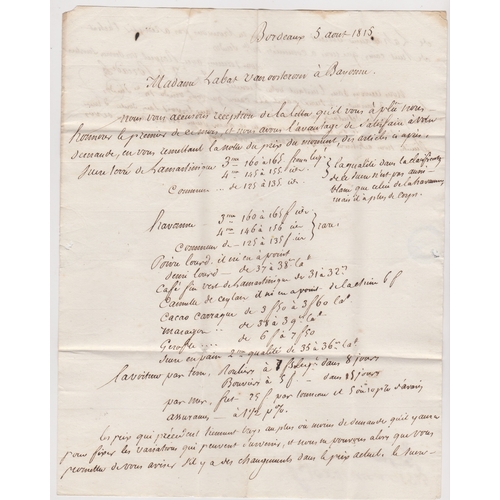 Bordeaux 5 aout 1815
Madame Labat Van oosterom à Bayonne.
nous vous accusons réception de la lettre qu'il vous à plû nous
le premier de ce mois, et nous avons l'avantage de satisfaire à votre
demande, en vous remettant la note du prix du moment des articles ci après.
Sucre terré de La martinique 3me 160 à 165f
4me 145 à 155 id
Commune .. de 125 à 135 id
la qualité dans la
de ce n'est pas aussi
blanc que celui de la havanne,
mais il a plus de corps.
havanne 3me 160 à 165f id
4me 146 à 156 id
Commune de - 125 à 135f id
rare.
Poivre lourd il n'y en a point
demi lourd - de 37 à 38
Café fin vert de La martinique de 31 à 32
Canelle de ceylan il n'y en a point - de la chine 6f
Cacao Carraque de 3f50 à 3f60
- de 38 à 39
Gerofle ... - de 6f à 7f50
Sucre en pain 2me qualité de 35 à 36
La voiture par terre. Rouliers à 7f dans 8 jours
Bouviers à 5f - dans 15 jours
par mer, fret 25f par tonneau et
assurances - à 1
Les prix qui précèdent tiennent vers au plus ou moins de demande qu'il y aura
pour fixer les variations qui peuvent survenir, et nous ne pouvons alors que vous
promettre de vous aviser s'il y a des changements dans le prix actuel. le